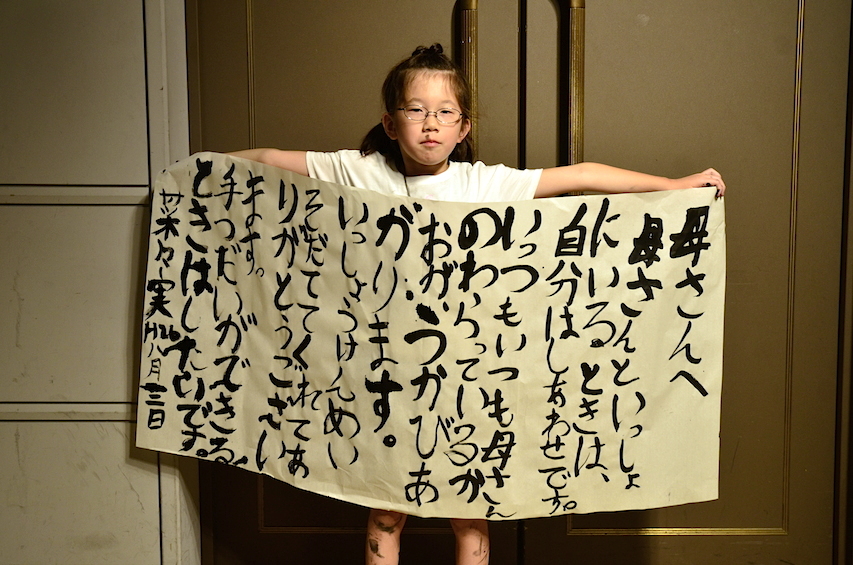 母さんへ
母さんといっしょ
にいるときは、
自分はしあわせです。
いっつもいつも母さん
のわらっているか
おがうかびあ
がります。
いっしょうけんめい
そだててくれてあ
りがとうござい
ます。
手つだいができる
ときはしたいです。
菜々実 H26 八月 三日